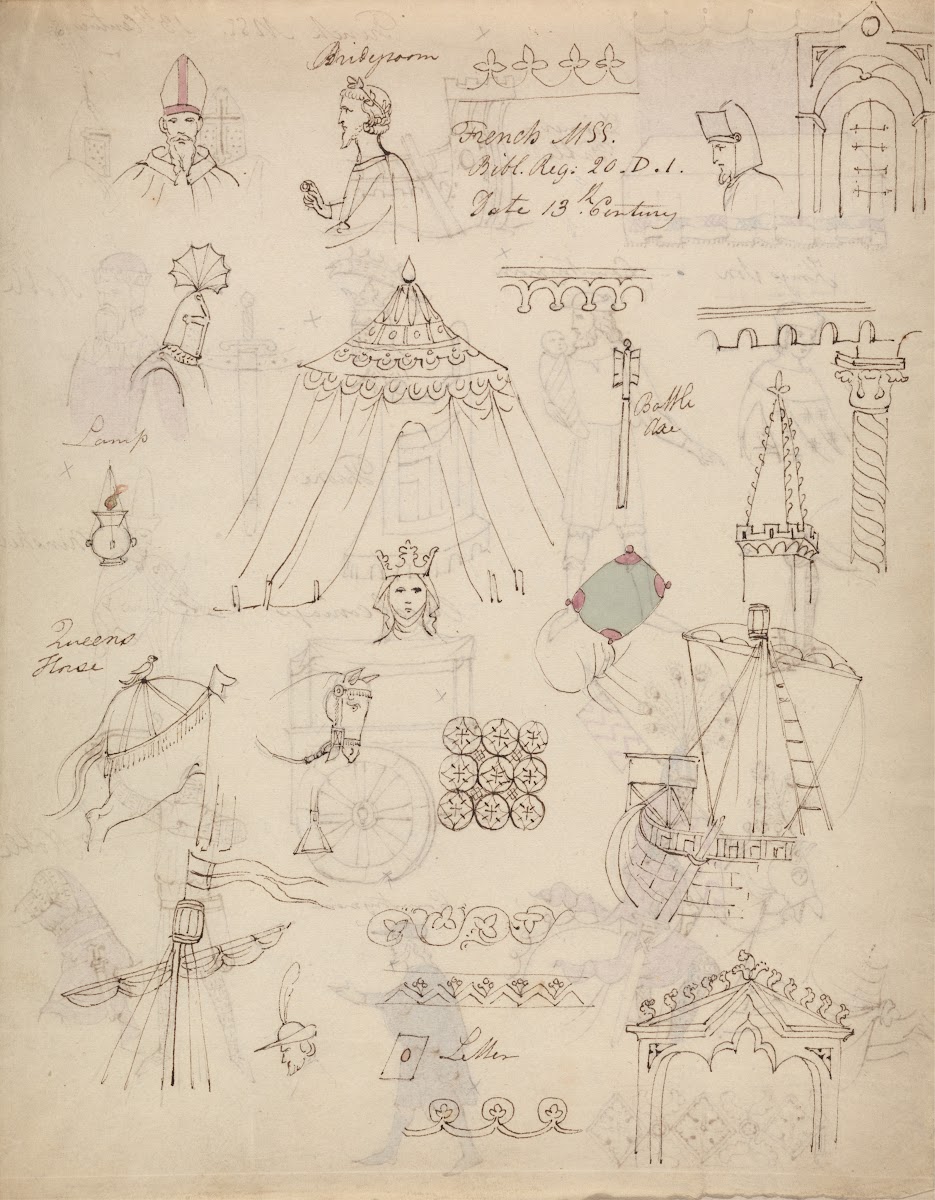 Bridegroom
French MSS.
Bibl. Reg: 20. D. 1.
Date 13th Century
Battle
Axe
Lamp
Queens
Horse
Letter